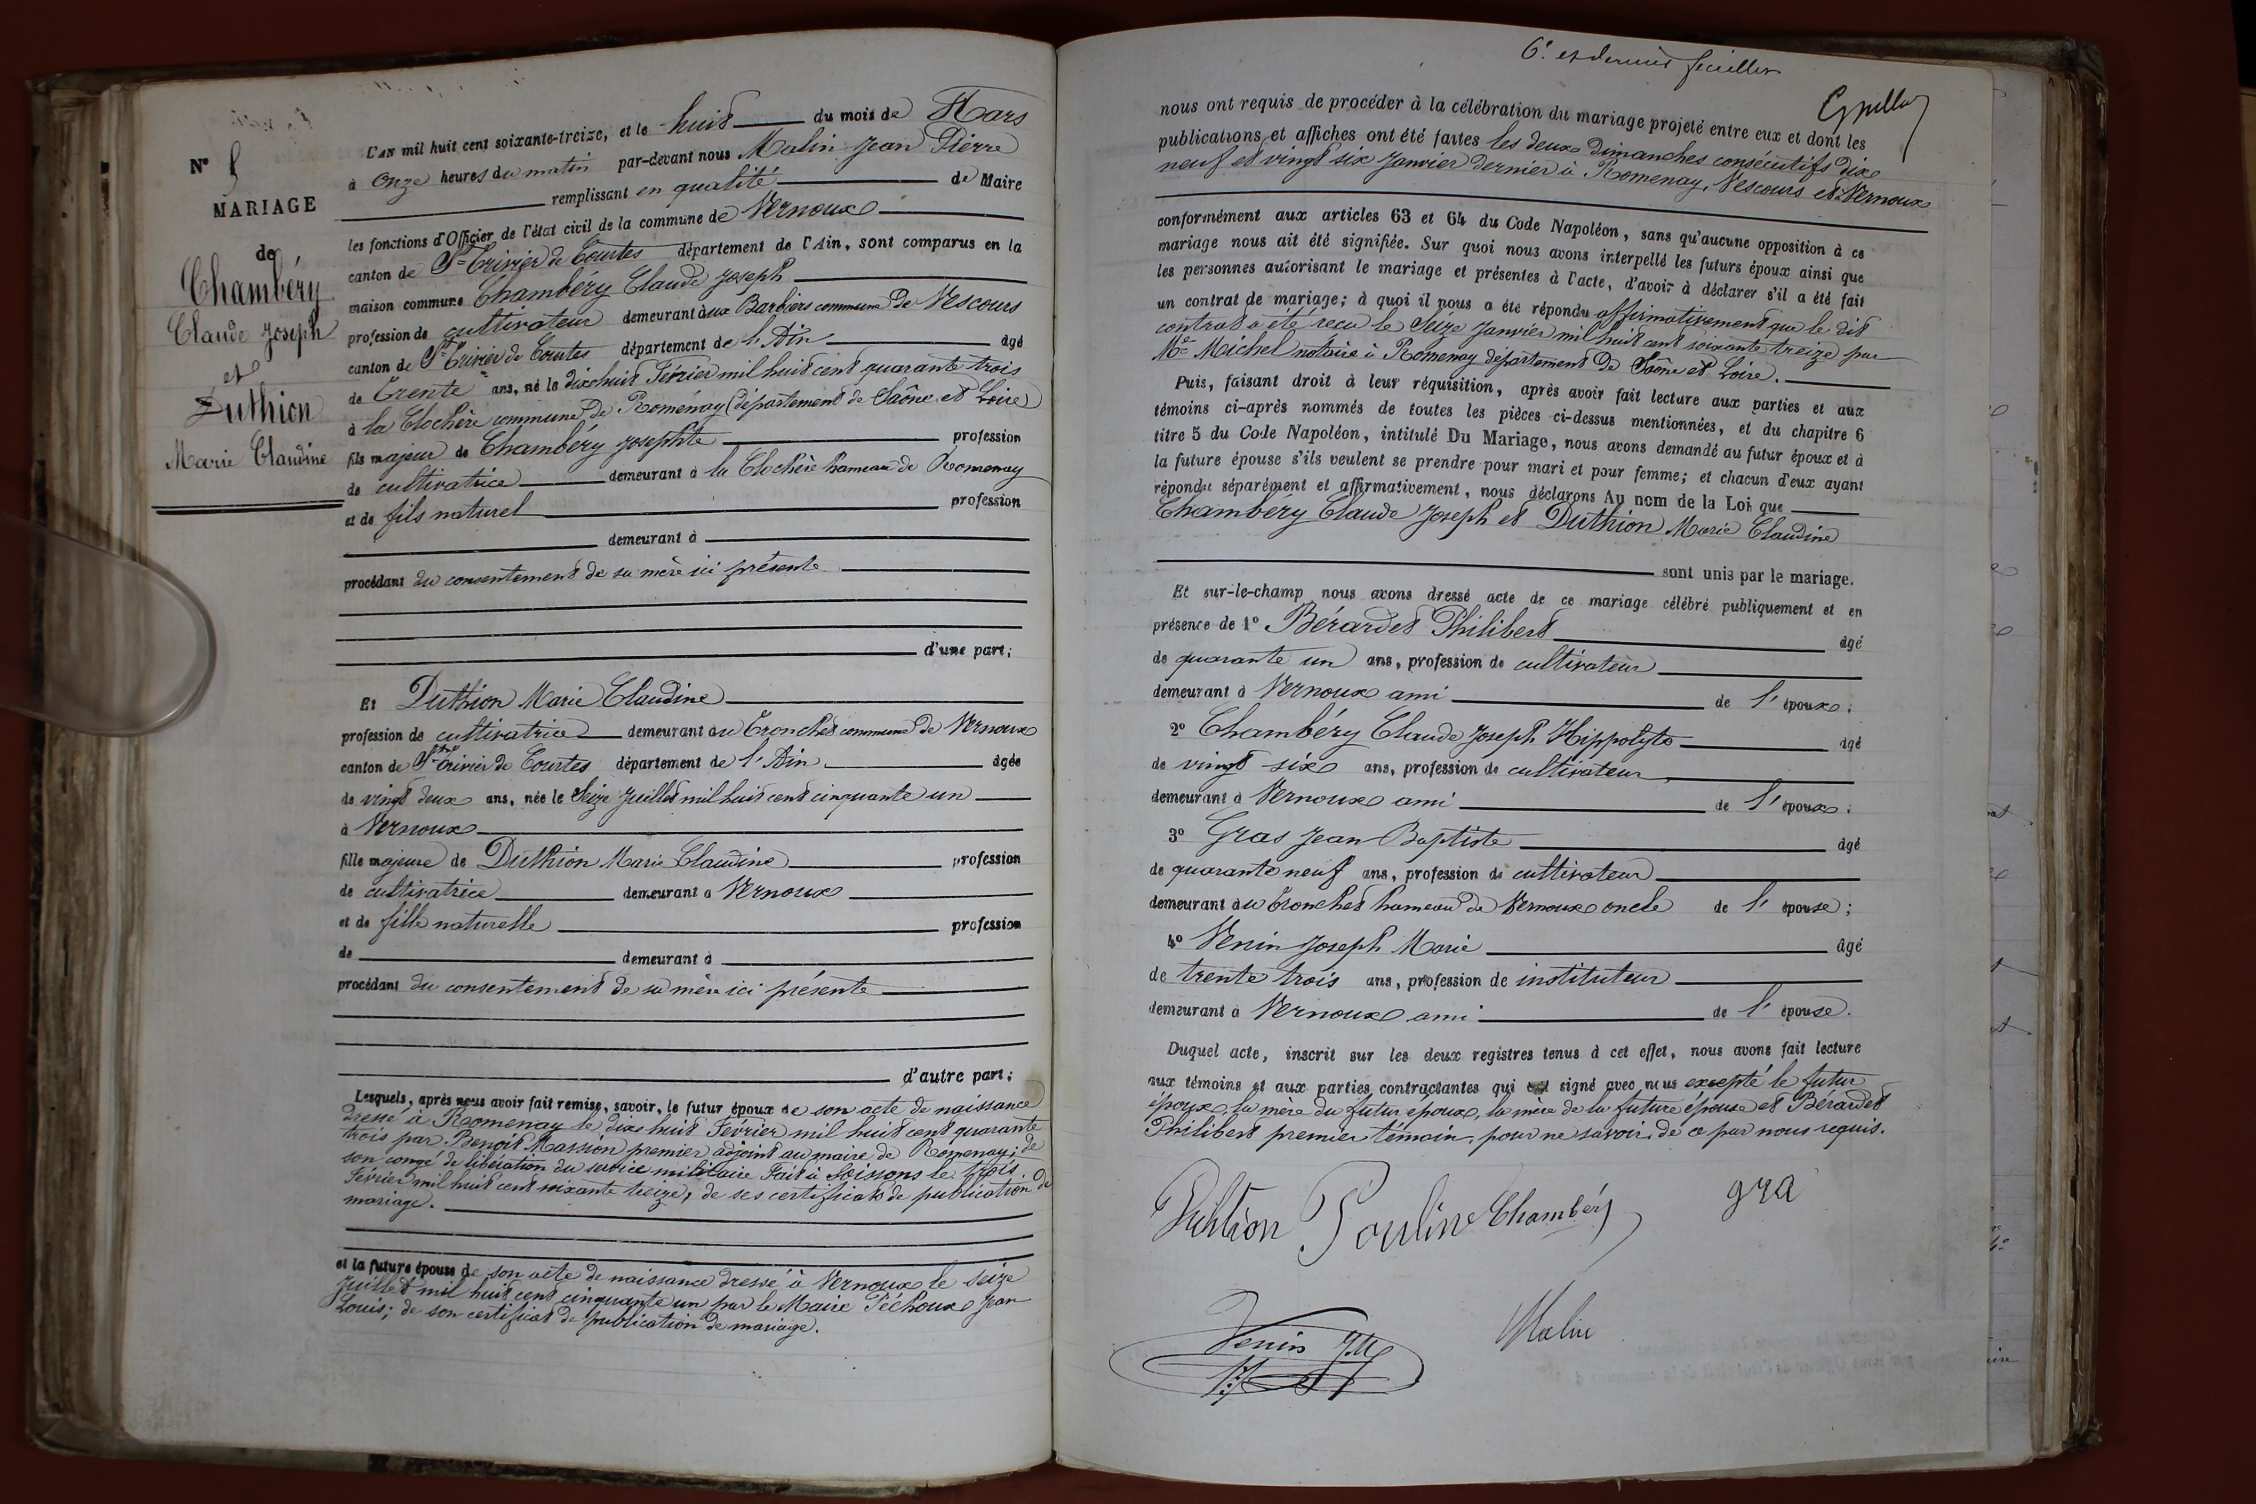 N° 5
MARIAGE
de
Chambéry
Claude Joseph
et
Duthion
Marie Claudine
L'AN mil huit cent soixante-treize, et le huit du mois de Mars
à onze heures du matin par-devant nous Malin Jean Pierre
remplissant en qualité de Maire
les fonctions d'Officier de l'état civil de la commune de Vernoux
canton de St Trivier de Courtes département de l'Ain, sont comparus en la
maison commune Chambéry Claude Joseph
profession de cultivateur demeurant à aux Barbiers commune de Vescours
canton de St Trivier de Courtes département de l'Ain âgé
de trente ans, né le dix huit Février mil huit cent quarante trois
à la Clochère commune de Romenay (département de Saône et Loire)
fils majeur de Chambéry Josephte profession
de cultivatrice demeurant à la Clochère hameau de Romenay
et de fils naturel profession
demeurant à
procédant du consentement de sa mère ici présente
d'une part;
Et Duthion Marie Claudine
profession de cultivatrice demeurant au Tronchet commune de Vernoux
canton de St Trivier de Courtes département de l'Ain âgée
de vingt deux ans, née le Seize Juillet mil huit cent cinquante un
à Vernoux
fille majeure de Duthion Marie Claudine profession
de cultivatrice demeurant à Vernoux
et de fille naturelle profession
de demeurant à
procédant du consentement de sa mère ici présente
d'autre part;
Lesquels, après nous avoir fait remise, savoir, le futur époux de son acte de naissance
dressé à Romenay le dix huit Février mil huit cent quarante
trois par Benoît Massion premier adjoint au maire de Romenay; de
son congé de libération du service militaire fait à Soissons le trois
Février mil huit cent soixante treize, de ses certificats de publication de
mariage.
et la future épouse de son acte de naissance dressé à Vernoux le seize
Juillet mil huit cent cinquante un par le Maire Péchoux Jean
Louis; de son certificat de publication de mariage.
6e et dernier feuillet
nous ont requis de procéder à la célébration du mariage projeté entre eux et dont les
publications et affiches ont été faites les deux dimanches consécutifs dix
neuf et vingt six Janvier dernier à Romenay, Vescours et Vernoux
conformément aux articles 63 et 64 du Code Napoléon, sans qu'aucune opposition à ce
mariage nous ait été signifiée. Sur quoi nous avons interpellé les futurs époux ainsi que
les personnes autorisant le mariage et présentes à l'acte, d'avoir à déclarer s'il a été fait
un contrat de mariage; à quoi il nous a été répondu affirmativement que le dit
contrat a été reçu le Seize Janvier mil huit cent soixante treize par
Me Michel notaire à Romenay département de Saône et Loire.
Puis, faisant droit à leur réquisition, après avoir fait lecture aux parties et aux
témoins ci-après nommés de toutes les pièces ci-dessus mentionnées, et du chapitre 6
titre 5 du Code Napoléon, intitulé Du Mariage, nous avons demandé au futur époux et à
la future épouse s'ils veulent se prendre pour mari et pour femme; et chacun d'eux ayant
répondu séparément et affirmativement, nous déclarons Au nom de la Loi que
Chambéry Claude Joseph et Duthion Marie Claudine
sont unis par le mariage.
Et sur-le-champ nous avons dressé acte de ce mariage célébré publiquement et en
présence de 1° Bérardet Philibert âgé
de quarante un ans, profession de cultivateur
demeurant à Vernoux ami de l'époux;
2° Chambéry Claude Joseph Hippolyte âgé
de vingt six ans, profession de cultivateur
demeurant à Vernoux ami de l'époux;
3° Gras Jean Baptiste âgé
de quarante neuf ans, profession de cultivateur
demeurant au Tronchet hameau de Vernoux oncle de l'épouse;
4° Venin Joseph Marie âgé
de trente trois ans, profession de instituteur
demeurant à Vernoux ami de l'épouse.
Duquel acte, inscrit sur les deux registres tenus à cet effet, nous avons fait lecture
aux témoins et aux parties contractantes qui ont signé avec nous excepté le futur
époux, la mère du futur époux, la mère de la future épouse et Bérardet
Philibert premier témoin, pour ne savoir de ce par nous requis.
Duhtion Pouline Chambéry gra
Venin J.M
Malin